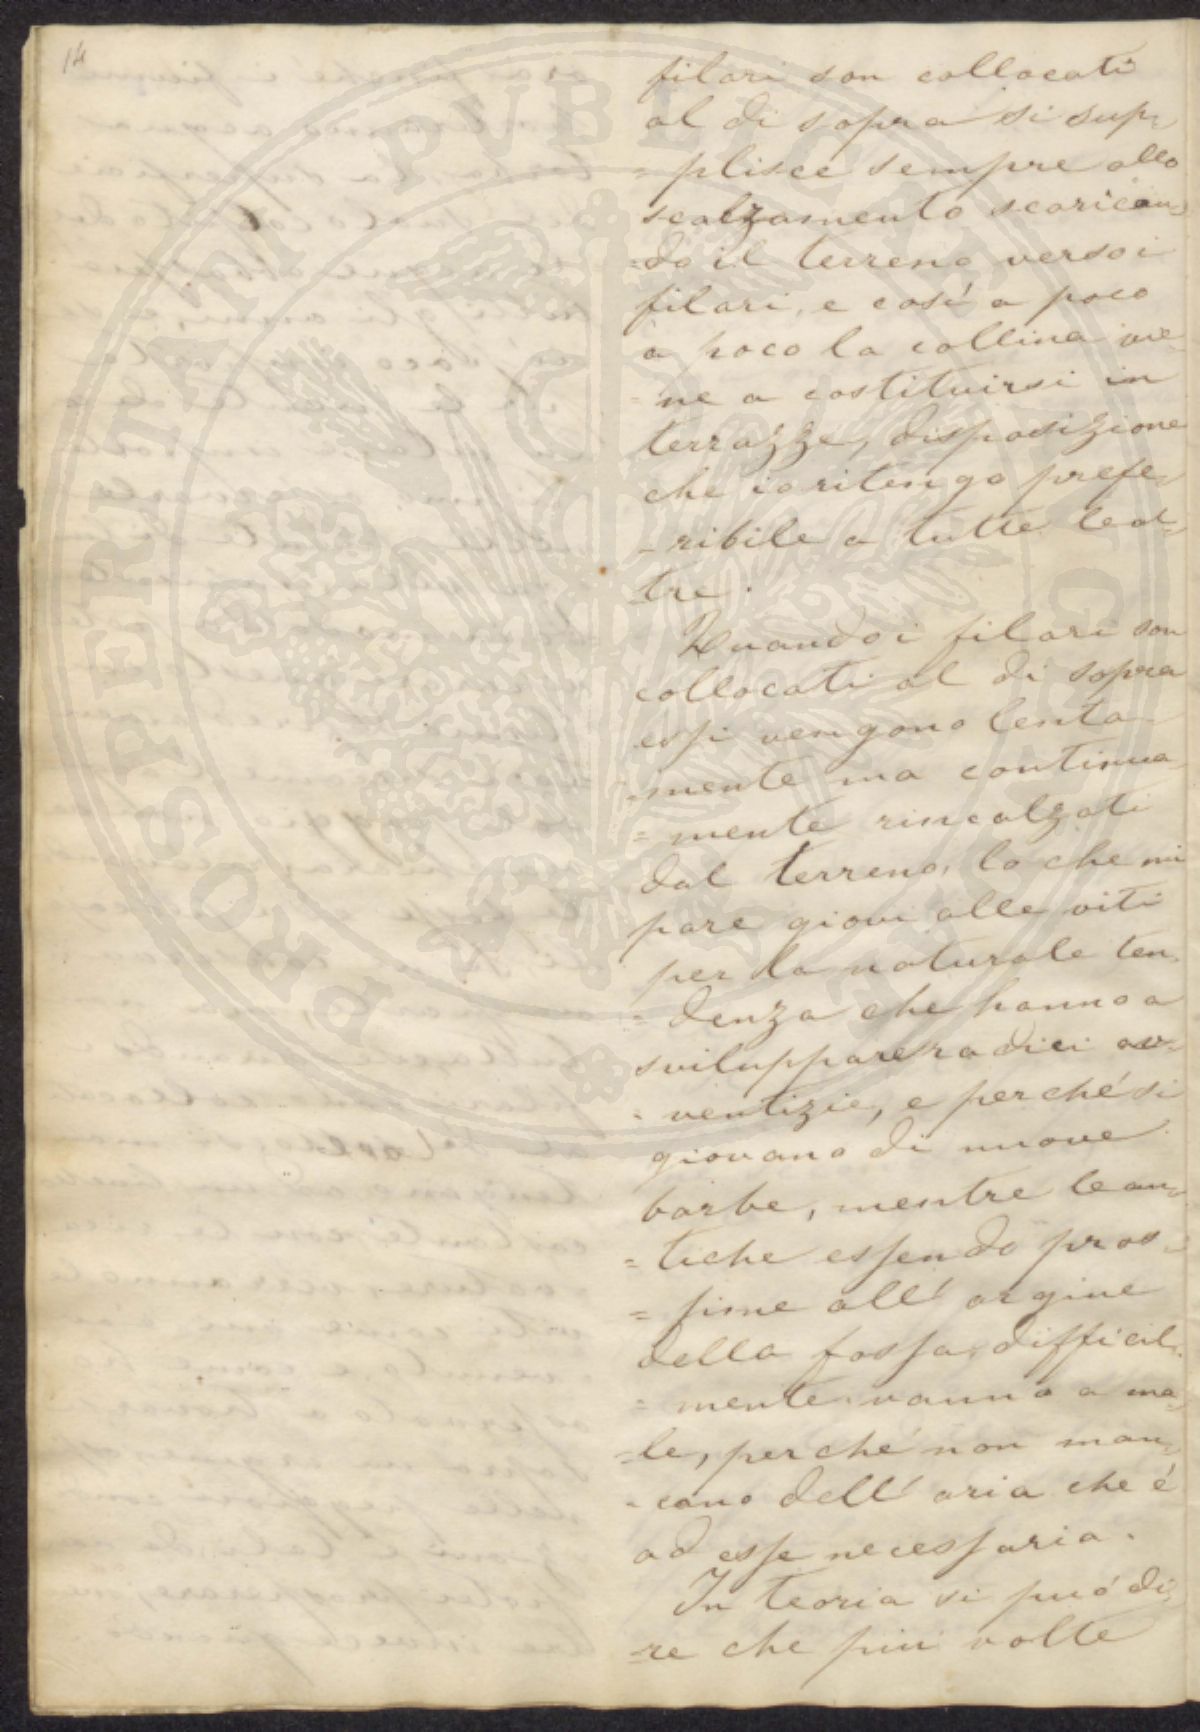 14
filari son collocati
al di sopra si sup=
=plisce sempre allo
scalzamento scarican=
=do il terreno verso i
filari, e così a poco
a poco la collina vie=
=ne a costituirsi in
terrazze, disposizione
che io ritengo prefe=
=ribile a tutte le al=
tre.
Quando i filari son
collocati al di sopra
essi vengono lenta=
=mente ma continua=
=mente rincalzati
dal terreno, lo che mi
pare giovi alle viti
per la naturale ten=
=denza che hanno a
sviluppare radici av=
=ventizie, e perché si
giovano di nuove
barbe, mentre le an=
=tiche essendo pros=
=sime all' argine
della fossa, difficil=
=mente vanno a ma=
=le, perché non man=
=cano dell' aria che é
ad esse necessaria.
In teoria si puó di=
=re che piu volte
PROSPERITATI PVBLICAE AVGENDAE